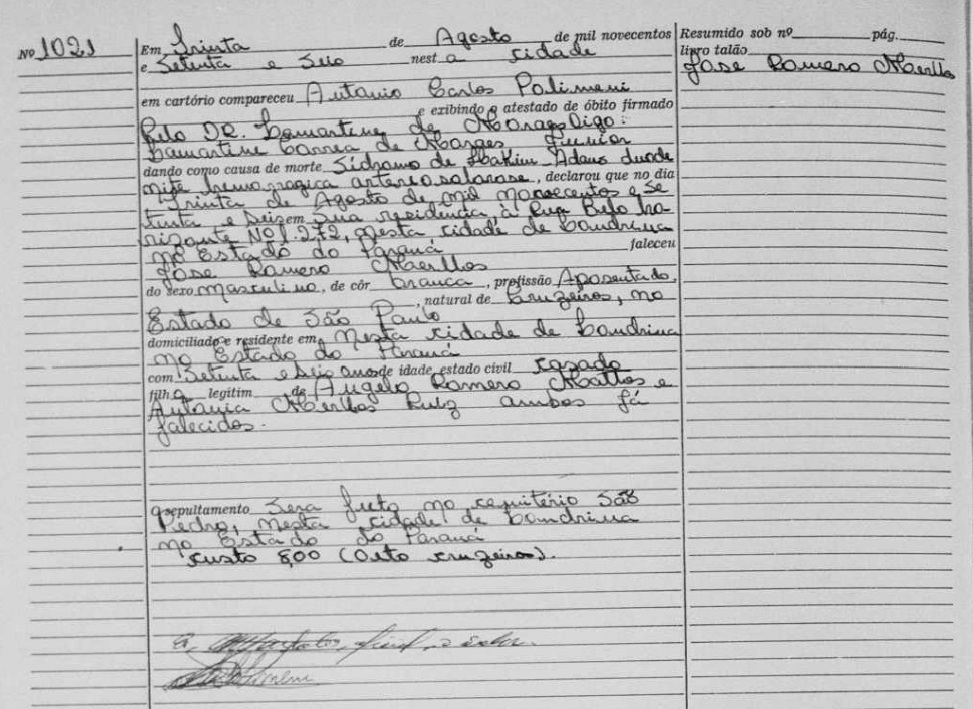 Nº 1021
Em Trinta de Agosto de mil novecentos
e Setenta e Seis nest a cidade
em cartório compareceu Antonio Carlos Polimeni
e exibindo o atestado de óbito firmado
Pelo DR. Lamartine de Moraes Digo:
Lamartine Correa de Moraes Junior
dando como causa de morte Sídromo de Stokim Adans
mite hemoragica, declarou que no dia
Trinta de Agosto de mil novecentos e se
tenta e Seis em Sua residencia à Rua Belo ho
rizonte Nº 1.272, nesta cidade de Londrina
no Estado do Paraná faleceu
Jose Romero Merlhos
do sexo masculino, de côr branca, profissão Aposentado,
, natural de Cruzeiros, no
Estado de São Paulo
domiciliado e residente em Nesta cidade de Londrina
no Estado do Paraná
com Setenta e Seis anos de idade, estado civil casado
filh o legitim de Angelo Romero Mathos e
Antonia Merlhos Ruiz ambos já
falecidos.
O sepultamento Sera feito no cemitério São
Pedro, nesta cidade de Londrina
no Estado do Paraná
custo 8,00 (Oito cruzeiros).
Resumido sob nº pág.
livro talão
Jose Romero Merlhos